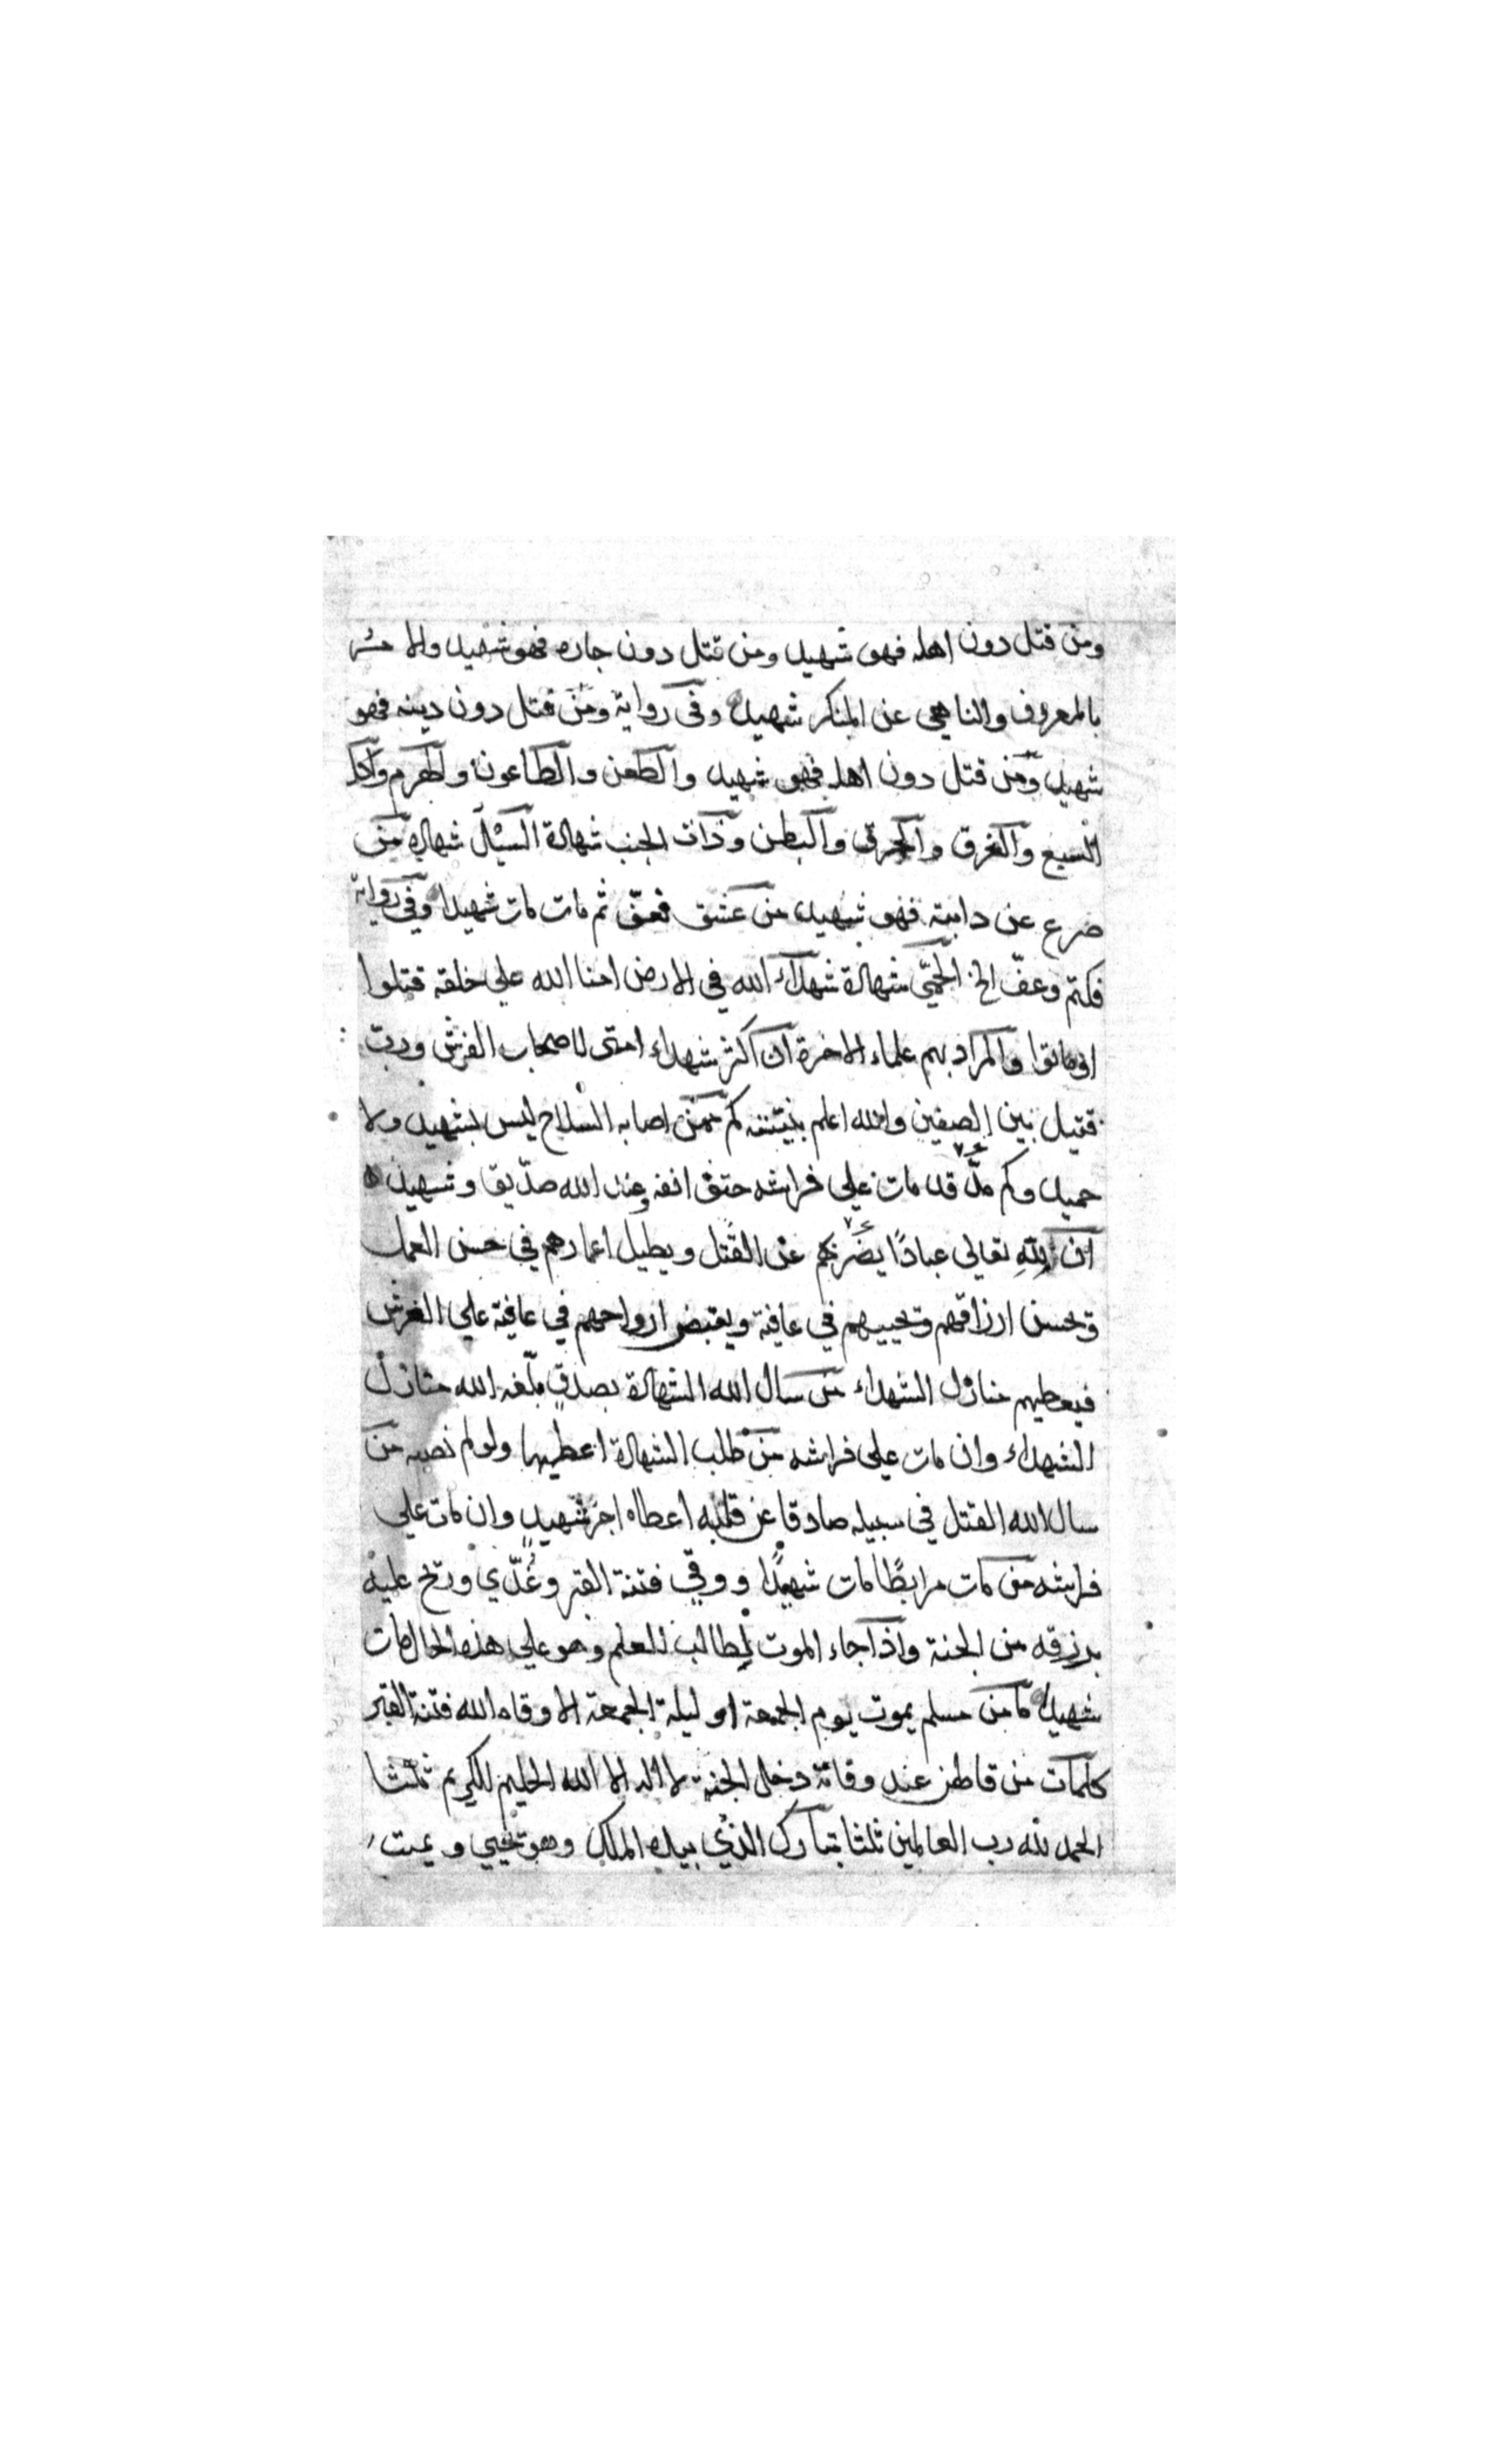 ومن قتل دون اهله فهو شهيد ومن قتل دون جاره فهو شهيد والامر
بالمعروف والناهي عن المنكر شهيد وفى رواية ومن قتل دون دينه فهو
شهيد ومن قتل دون اهله فهو شهيد والطعن والطاعون والهرم واكل
السبع والغرق والحرق والبطن وذات الجنب شهادة السل شهادة من
صرع عن دابته فهو شهيد من عشق فعف ثم مات مات شهيدا وفي رواية
فكتم وعفّ الخ الحمّى شهادة شهداء الله في الارض امنا الله علي خلقه قتلوا
او ماتوا والمراد بهم علماء الاخرة ان اكثر شهداء امتى لاصحاب الفرش ورب
قتيل بين الصفين والله اعلم بنيته كم ممن اصابه السلاح ليس بشهيد ولا
حميد وكم ممن قد مات علي فراشه حتف انفه وعند الله صدّيق وشهيد
ان لِلّهِ تعالى عبادًا يضن بهم عن القتل ويطيل اعمارهم في حسن العمل
وتحسن ارزاقهم وتحييهم في عافية ويقبض ارواحهم في عافية علي الفرش
فيعطيهم منازل الشهداء من سال الله الشهادة بصدق بلّغه الله منازل
الشهداء وان مات علي فراشه من طلب الشهادة اعطيها ولو لم تصبه من
سال الله القتل في سبيله صادقا عن قلبه اعطاه اجر شهيد وان مات علي
فراشه من مات مرابطًا مات شهيدًا ووقي فتنة القبر وغُدّي وريح عليه
برزقه من الجنة واذا جاء الموت لطالب للعلم وهو علي هذه الحال مات
شهيدا ما من مسلم يموت يوم الجمعة او ليلة الجمعة الا وقاه الله فتنة القبر
كلمات من قالهن عند وفاته دخل الجنة لا اله الا الله الحليم الكريم ثلثا
الحمد لله رب العالمين ثلثا تبارك الذي بيده الملك وهو يحيي ويميت